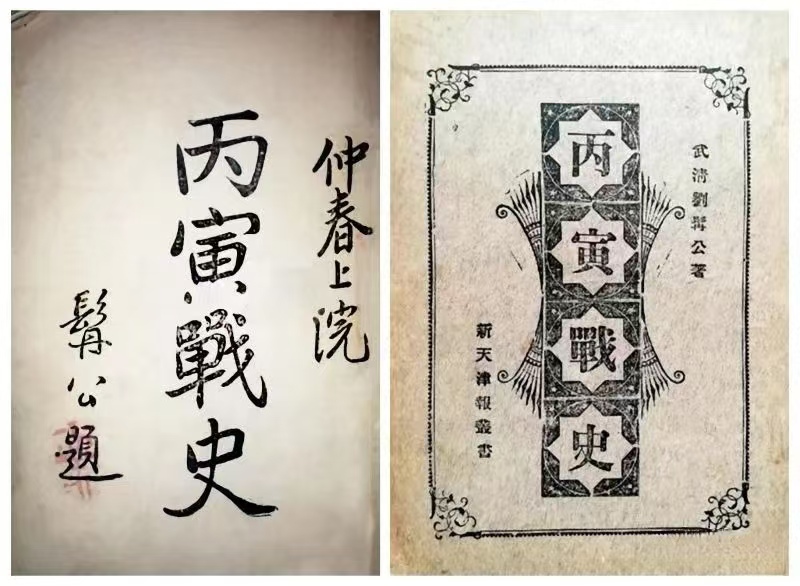 仲春上浣
丙寅戰史
髯公題
武清劉髯公著
丙寅戰史
新天津報叢書